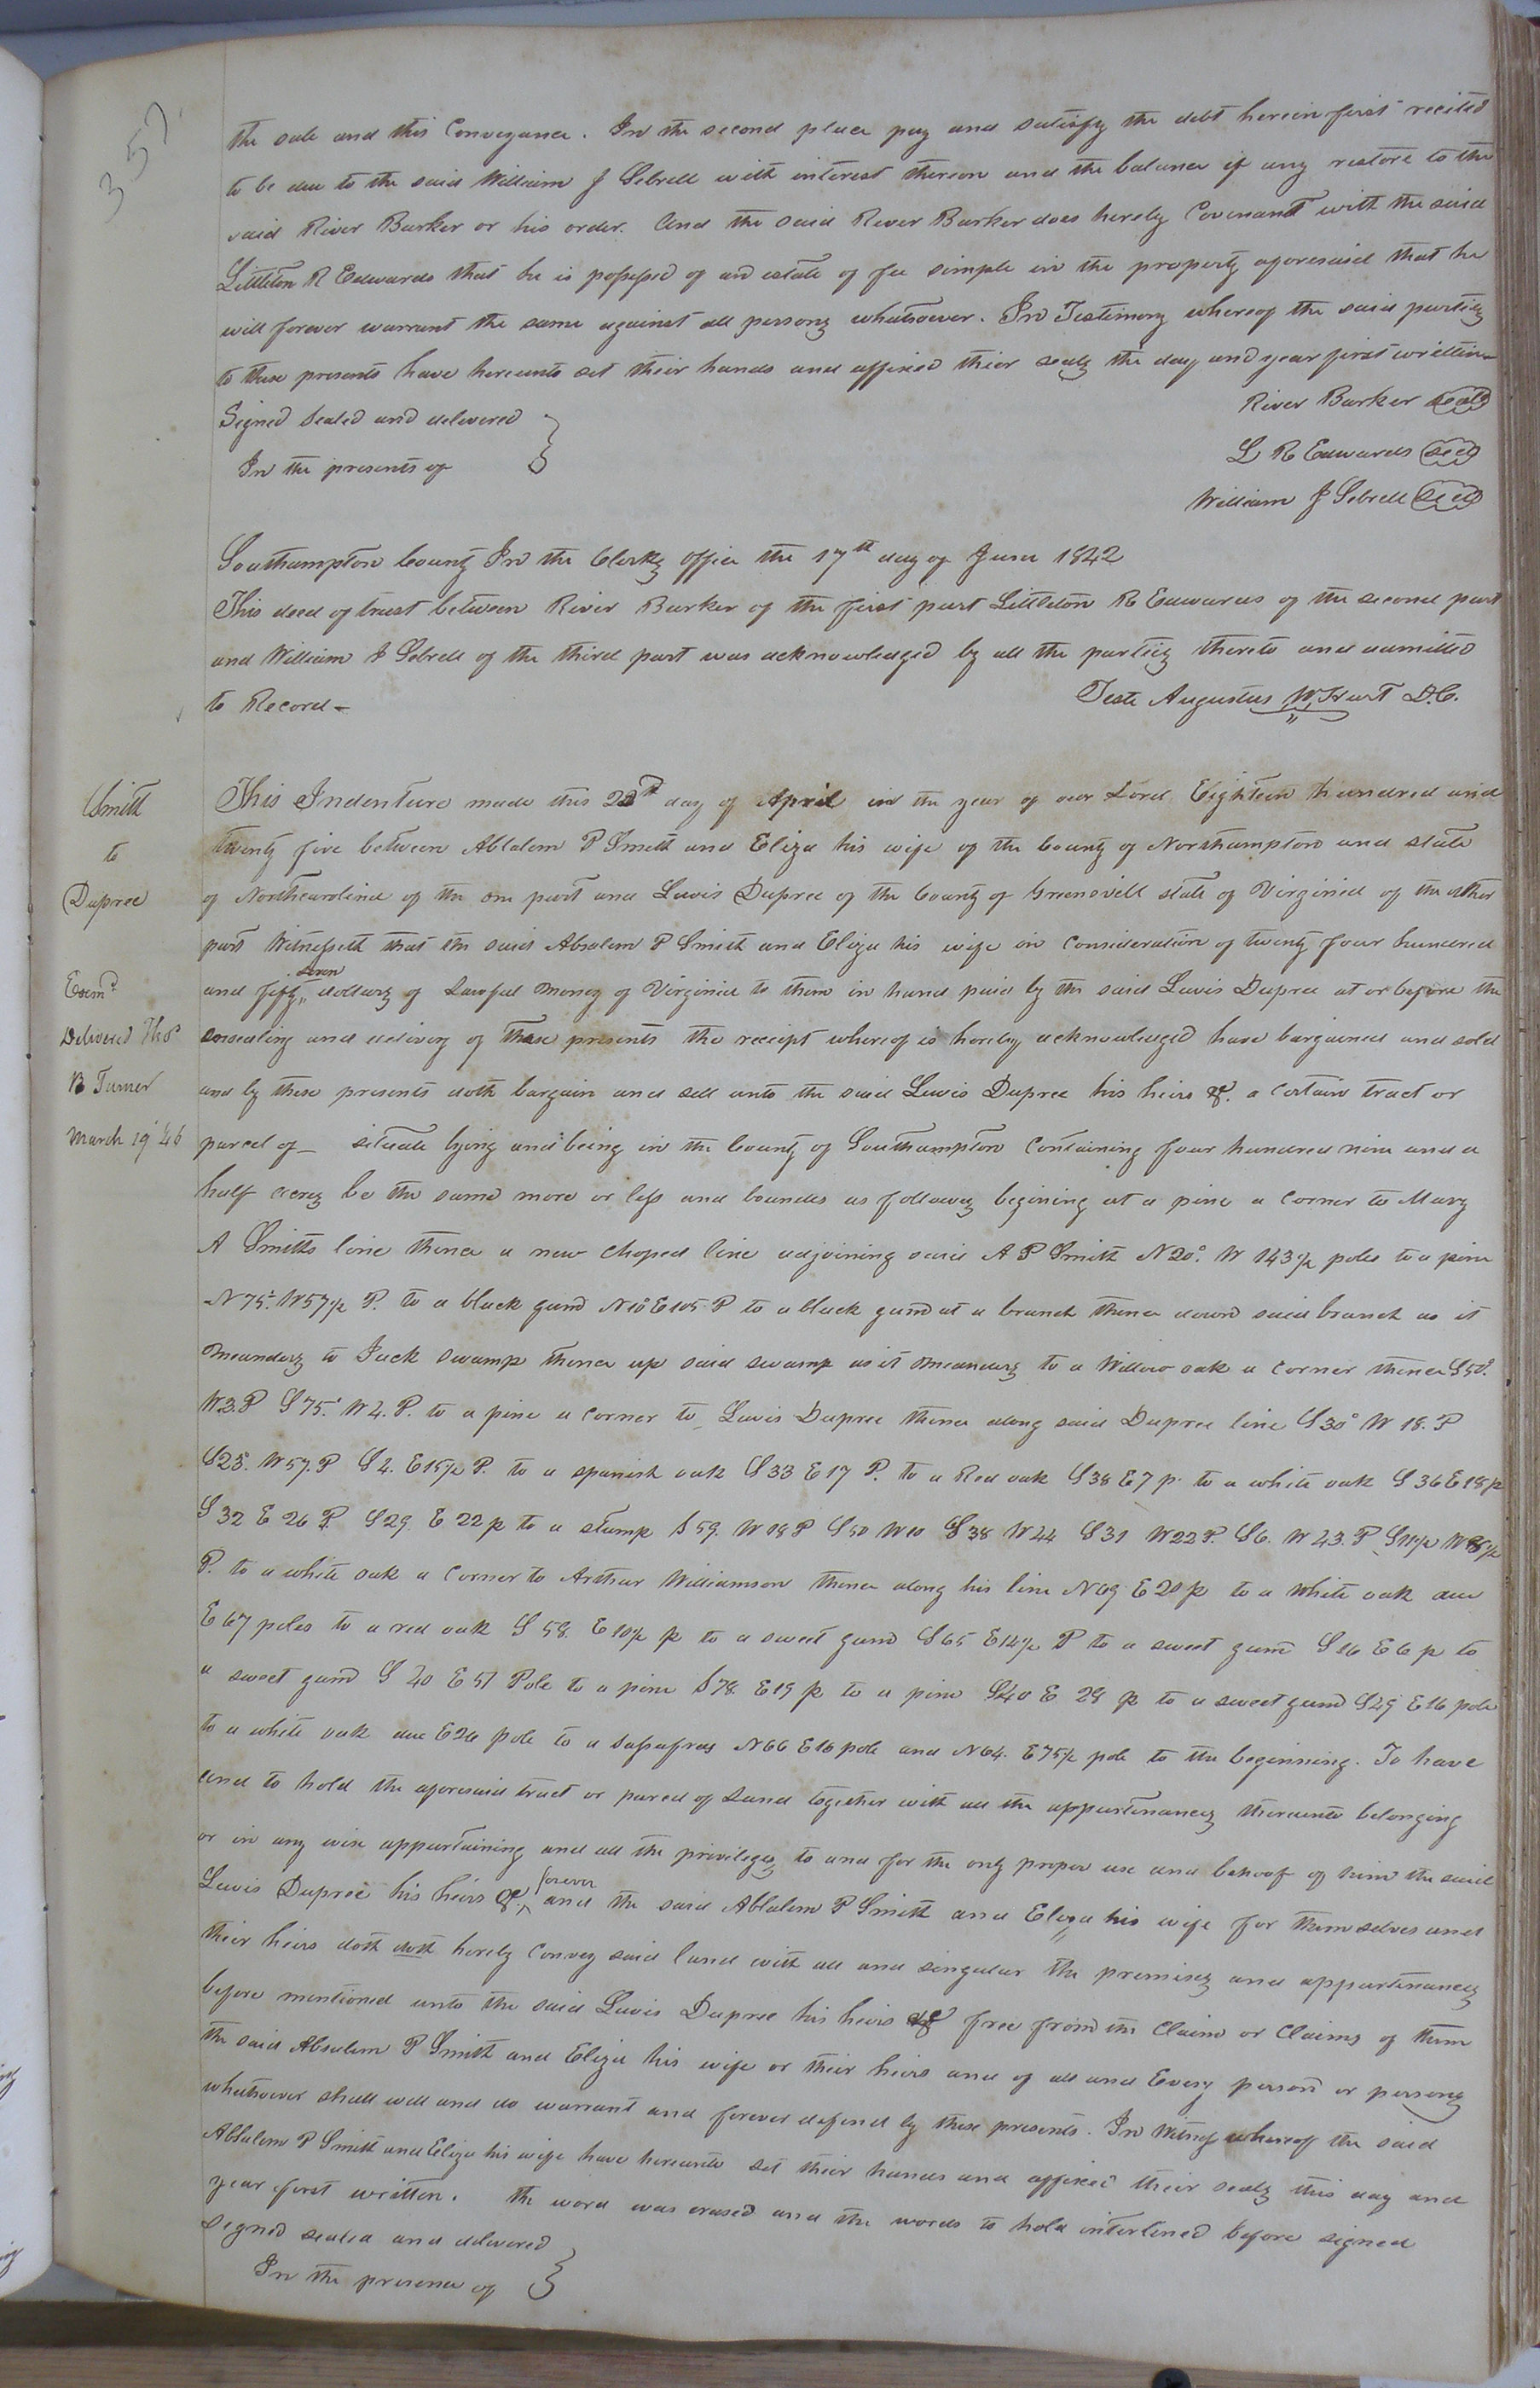 357
the sale and this Conveyance. In the second place pay and satisfy the debt herein first recited
to be due to the said William J Sebrell with interest thereon and the balance if any restore to the
said River Barker or his order. And the said River Barker does hereby Covenant with the said
Littleton R Edwards that he is possessed of an estate of fee simple in the property aforesaid that he
will forever warrant the same against all persons whatsoever. In Testimony whereof the said parties
to these presents have hereunto set their hands and affixed their seals the day and year first written
Signed Sealed and delivered } River Barker seal
In the presents of L R Edwards seal
William J Sebrell seal
Southampton County In the Clerks office the 17th day of June 1842
This deed of trust between River Barker of the first part Littleton R Edwards of the second part
and William J Sebrell of the third part was acknowledged by all the parties thereto and admitted
to Record – Teste Augustus W. Hart D.C.
Smith
to
Dupree
Examd
Delivered Thos
B Turner
March 19 '46
This Indenture made this 22d day of April in the year of our Lord Eighteen hundred and
twenty five between Ablalom P Smith and Eliza his wife of the County of Northampton and state
of Northcarolina of the one part and Lewis Dupree of the County of Greensvill state of Virginia of the other
part Witnesseth that the said Absalem P Smith and Eliza his wife in Consideration of twenty four hundred
and fifty seven dollars of Lawful money of Virginia to them in hand paid by the said Lewis Dupree at or before the
ensealing and delivery of these presents the receipt whereof is hereby acknowledged have bargained and sold
and by these presents doth bargain and sell unto the said Lewis Dupree his heirs &c. a certain tract or
parcel of – situate lying and being in the County of Southampton Containing four hundred nine and a
half acres be the same more or less and boundes as follows begining at a pine a Corner to Mary
A Smiths line thence a new Choped line adjoining said A P Smith N20° W 143½ poles to a pine
N 75° W57½ P. to a black gum N10 E105 P to a black gum at a branch thence down said branch as it
meanders to Jack swamp thence up said swamp as it meanders to a Willow oak a corner thence S50°
W3.P S75° W4.P. to a pine a Corner to Lewis Dupree thence along said Dupree line S30° W 18. P
S25. W57. P S2. E15½ P. to a spanish oak S33 E17 P. to a Red oak S38 E7 p to a white oak S36 E18p
S32 E 26 P. S29. E 22 p to a stump S59. W18 P S50 W10 S38 W44 S31 W22 P. S6. W43. P S11½
P. to a white oak a Corner to Arthur Williamson thence along his line N69 E20 p to a White oak due
E 67 poles to a red oak S58. E10½ p to a sweet gum S65 E14½ P to a sweet gum S16 E6 p to
a sweet gum S 40 E 51 Pole to a pine S78. E19 p to a pine S40 E 28 p to a sweet gum S29 E16 pole
to a white oak due E26 pole to a sassafras N66 E16 pole and N64. E75½ pole to the beginning. To have
and to hold the aforesaid tract or parcel of Land together with all the appurtenances thereunto belonging
or in any wise appurtaining and all the privileges to and for the only proper use and behoof of him the said
Lewis Dupree his heirs &c, forever and the said Ablalem P Smith and Eliza his wife for themselves and
their heirs doth doth hereby Convey said land with all and singular the premises and appurtenances
before mentioned unto the said Lewis Dupree his heirs &c free from the Claim or Claims of them
the said Absalem P Smith and Eliza his wife or their heirs and of all and Every person or persons
whatsoever shall will and do warrant and forever defend by these presents. In Witness whereof the said
Ablalem P Smith and Eliza his wife have hereunto set their hands and affixed their seals this day and
year first written. the word was erased and the words to hold interlined before signed
Signed sealed and delivered }
In the presence of